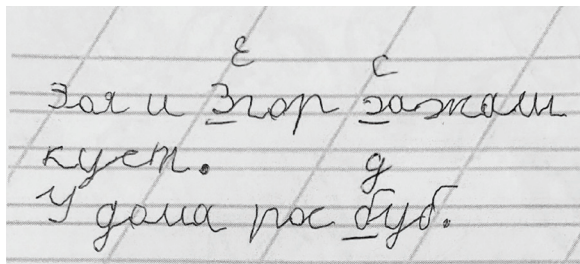 Е С
Зоя и Згор зажали
куст.
д
У дома рос буб.